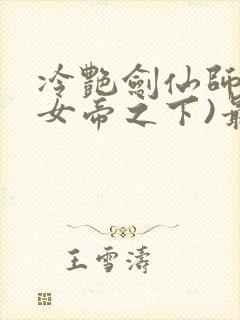 冷艷劍仙師
女帝之下)最
王雪濤